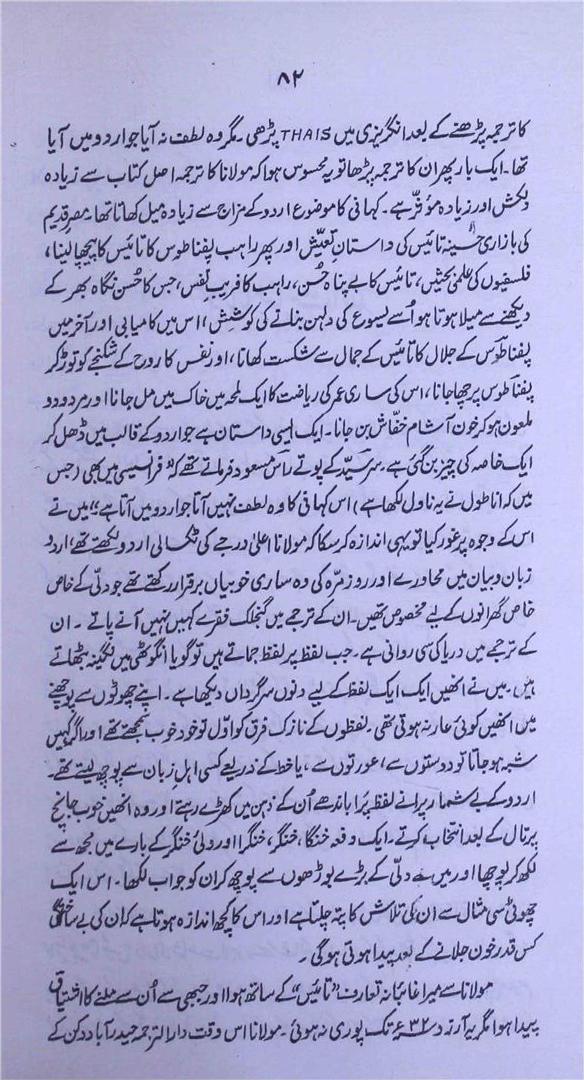 ۸۲
کا ترجمہ پڑھنے کے بعد انگریزی میں THAIS پڑھی۔ مگر وہ لطف نہ آیا جو اردو میں آیا
تھا۔ ایک بار پھر ان کا ترجمہ پڑھا تو یہ محسوس ہوا کہ مولانا کا ترجمہ اصل کتاب سے زیادہ
دلکش اور زیادہ مؤثر ہے۔ کہانی کا موضوع اردو کے مزاج سے زیادہ میل کھاتا تھا۔ مصرِ قدیم
کی بازاری حسینہ تائیس کی داستانِ تعیّش اور پھر راہب پفناطوس کا تائیس کا پیچھا لینا،
فلسفیوں کی علمی بحثیں، تائیس کا بے پناہ حُسن، راہب کا فریبِ نفس، جس کا حُسن نگاہ بھر کے
دیکھنے سے میلا ہوتا ہو اُسے یسوع کی دلہن بنانے کی کوشش، اس میں کامیابی اور آخر میں
پفناطوس کے جلال کا تائیس کے جمال سے شکست کھانا، اور نفس کا روح کے شکنجے کو توڑ کر
پفناطوس پر چھا جانا، اس کی ساری عمر کی ریاضت کا ایک لمحہ میں خاک میں مل جانا اور مردود و
ملعون ہو کر خون آشام خفّاش بن جانا۔ ایک ایسی داستان ہے جو اردو کے قالب میں ڈھل کر
ایک خاصہ کی چیز بن گئی ہے۔ سرسیّد کے پوتے راس مسعود فرماتے تھے کہ "فرانسیسی میں بھی (جس
میں کہ اناطول نے یہ ناول لکھا ہے) اس کہانی کا وہ لطف نہیں آتا جو اردو میں آتا ہے"، میں نے
اس کے وجوہ پر غور کیا تو یہی اندازہ کر سکا کہ مولانا اعلیٰ درجے کی ٹکسالی اردو لکھتے تھے، اردو
زبان و بیان میں محاورے اور روزمرّہ کی وہ ساری خوبیاں برقرار رکھتے تھے جو دلّی کے خاص
خاص گھرانوں کے لیے مخصوص تھیں۔ ان کے ترجمے میں گنجلک فقرے کہیں نہیں آنے پاتے۔ ان
کے ترجمے میں دریا کی سی روانی ہے۔ جب لفظ پر لفظ جماتے ہیں تو گویا انگوٹھی میں نگینہ بٹھاتے
ہیں۔ میں نے انھیں ایک ایک لفظ کے لیے دنوں سرگرداں دیکھا ہے۔ اپنے چھوٹوں سے پوچھنے
میں انھیں کوئی عار نہ ہوتی تھی۔ لفظوں کے نازک فرق کو اوّل تو خود خوب سمجھتے تھے اور اگر کہیں
شبہ ہو جاتا تو دوستوں سے، عورتوں سے، یا خط کے ذریعے کسی اہلِ زبان سے پوچھ لیتے تھے۔
اردو کے بے شمار پرانے لفظ پرا باندھے اُن کے ذہن میں کھڑے رہتے اور وہ انھیں خوب جانچ
پرتال کے بعد انتخاب کرتے۔ ایک دفعہ خنگا، خنگر، خنگرا اور ولیُ خنگر کے بارے میں مجھ سے
لکھ کر پوچھا اور میں نے دلّی کے بڑے بوڑھوں سے پوچھ کر ان کو جواب لکھا۔ اس ایک
چھوٹی سی مثال سے ان کی تلاش کا پتہ چلتا ہے اور اس کا کچھ اندازہ ہوتا ہے کہ ان کی بے ساختگی
کس قدر خون جلانے کے بعد پیدا ہوتی ہوگی۔
مولانا سے میرا غائبانہ تعارف "تائیس" کے ساتھ ہوا اور جبھی سے اُن سے ملنے کا اشتیاق
پیدا ہوا مگر یہ آرزو ۳۲ء تک پوری نہ ہوئی۔ مولانا اس وقت دارالترجمہ حیدرآباد دکن کے